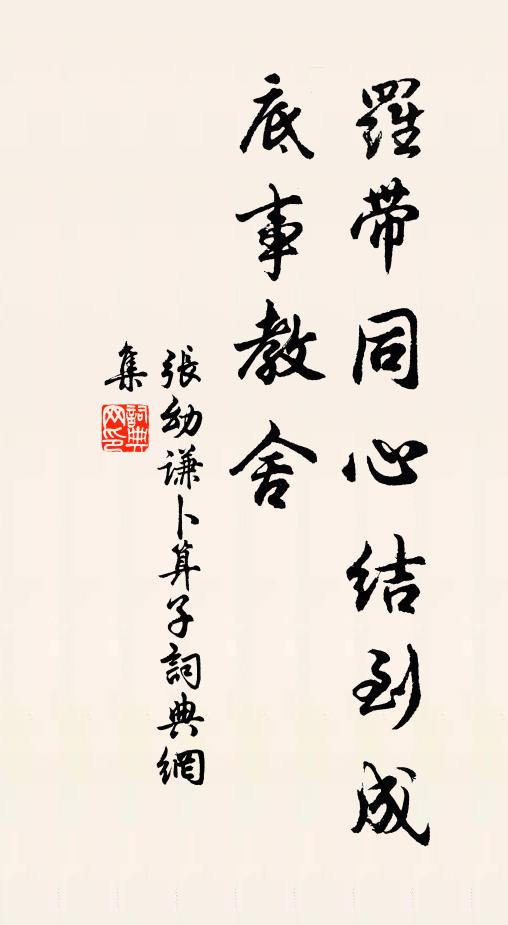 羅帶同心結到成
底事教舍
張幼謙卜算子詞典網
集
詞典
网印